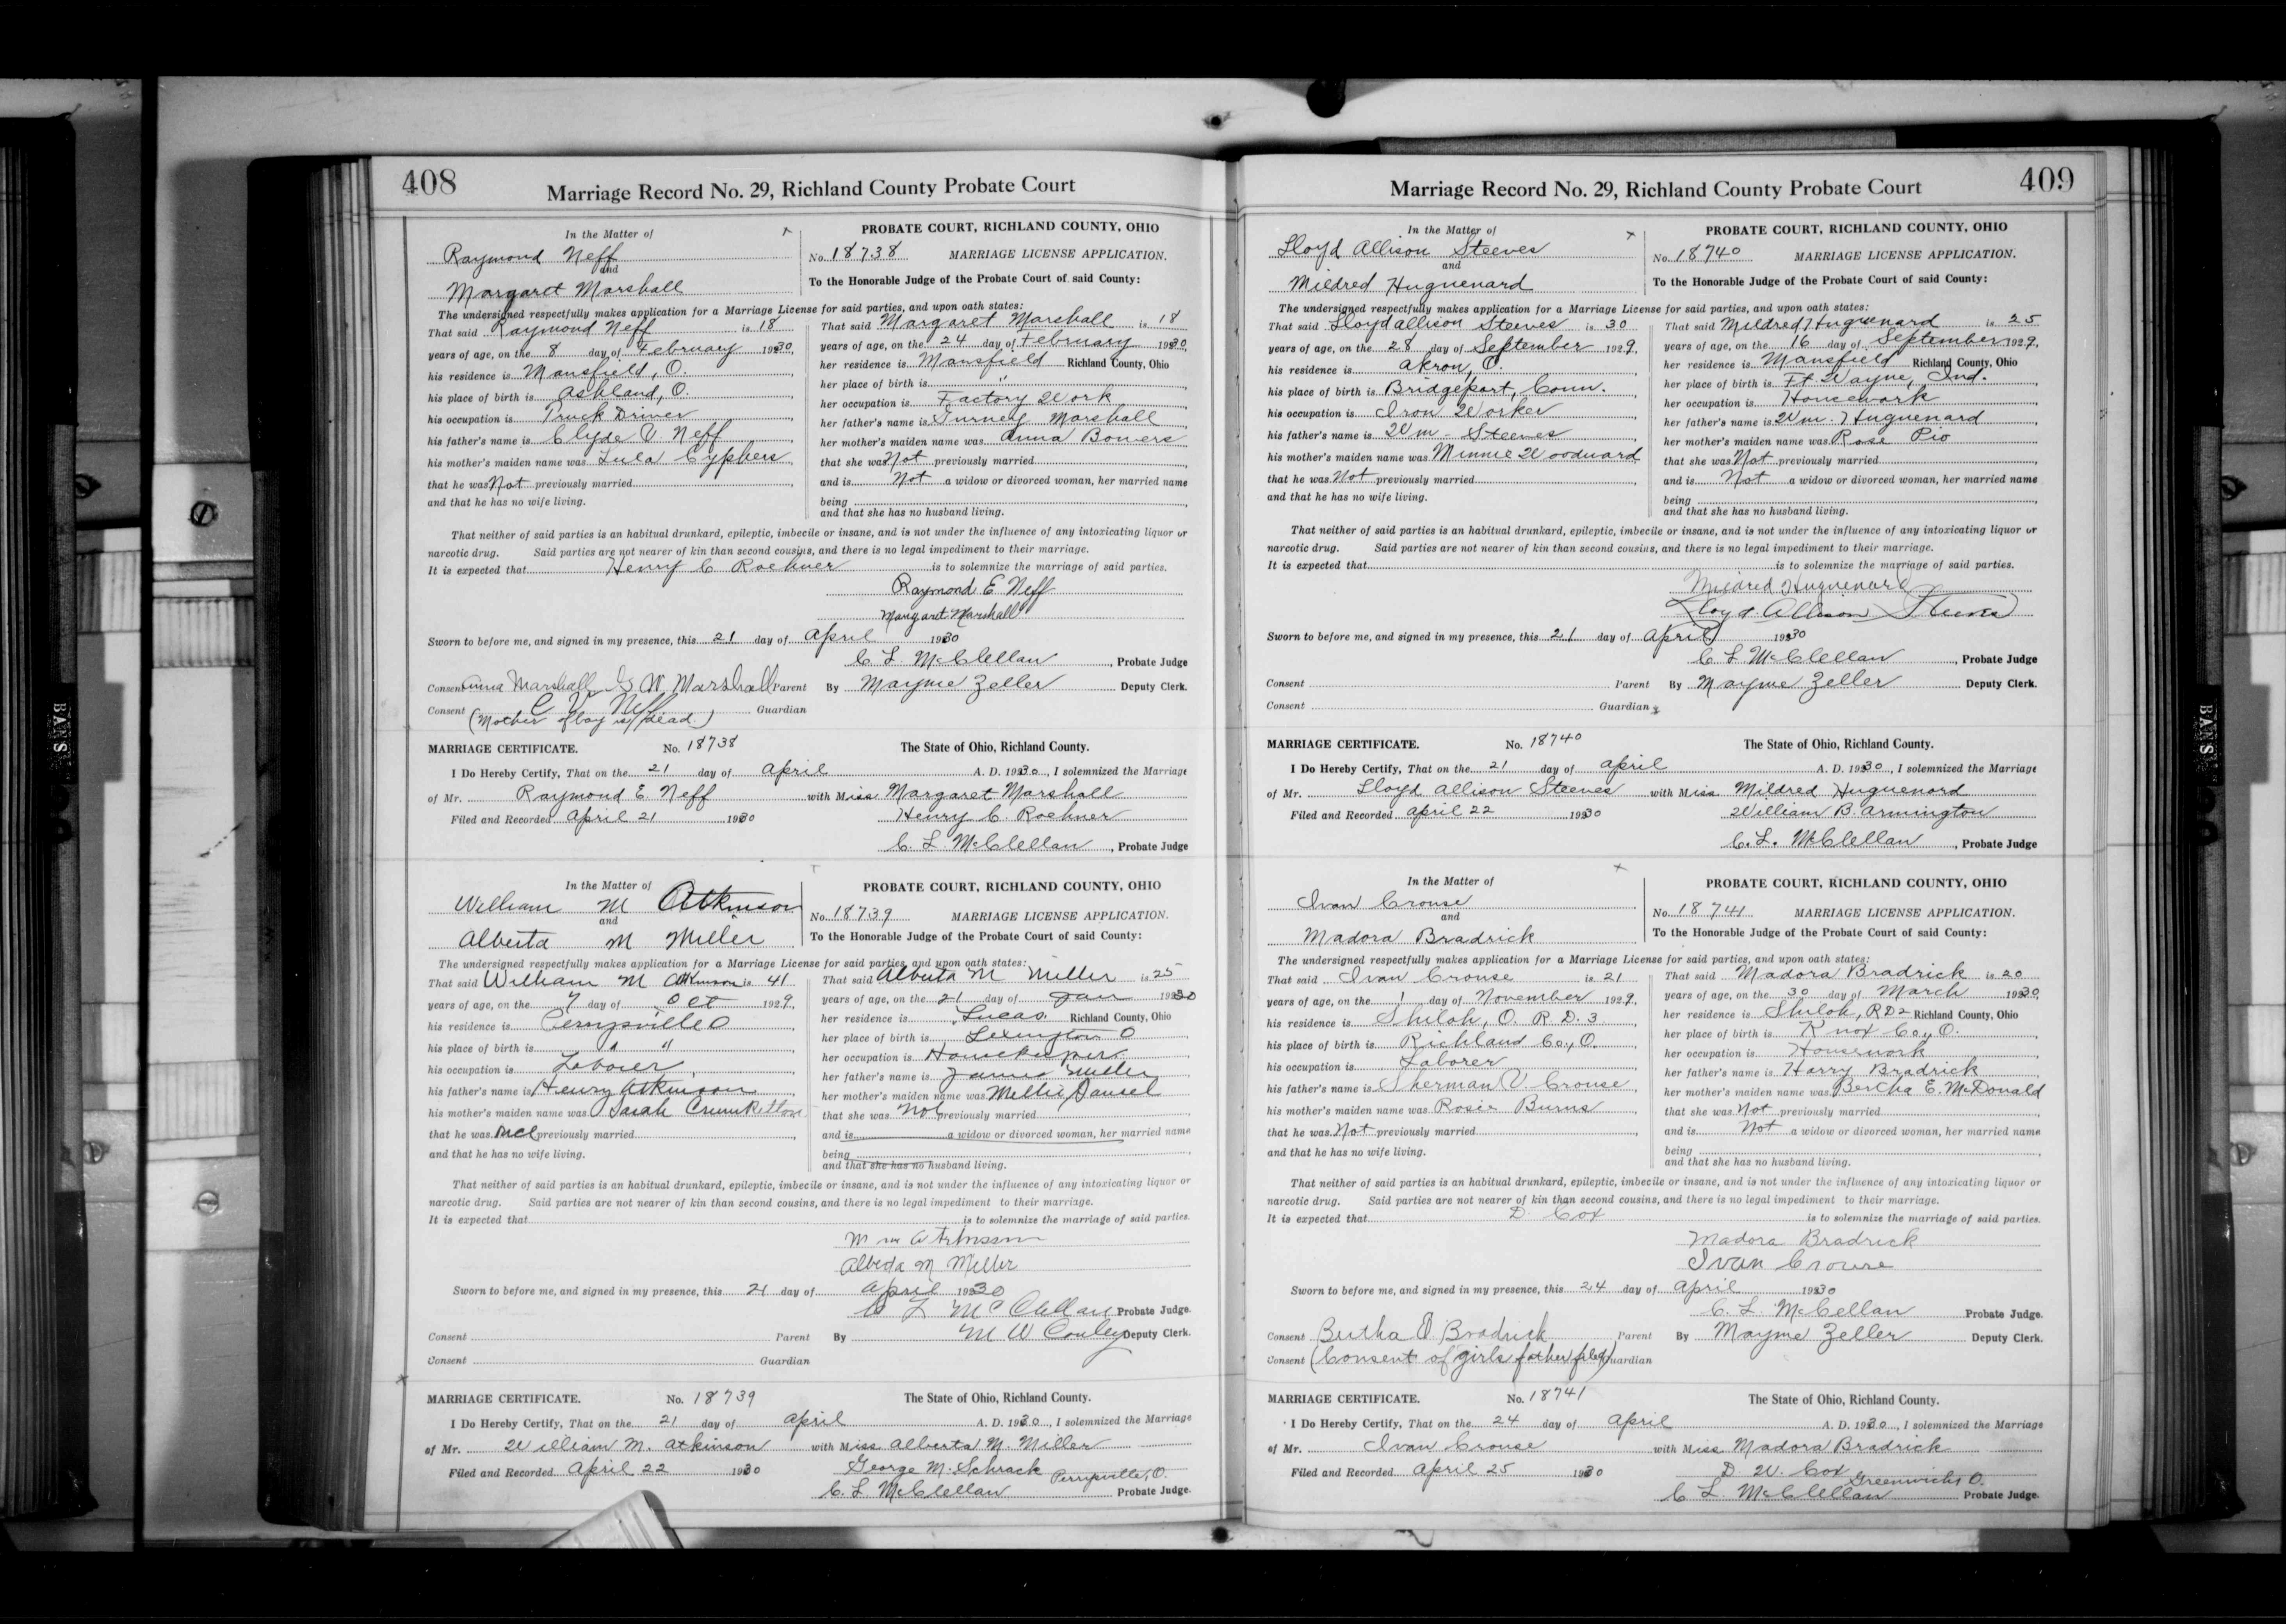 408
Marriage Record No. 29, Richland County Probate Court
In the Matter of
Raymond Neff
and
Margaret Marshall
PROBATE COURT, RICHLAND COUNTY, OHIO
No. 18738 MARRIAGE LICENSE APPLICATION.
To the Honorable Judge of the Probate Court of said County:
The undersigned respectfully makes application for a Marriage License for said parties, and upon oath states:
That said Raymond Neff is 18
years of age, on the 8 day of February 1930,
his residence is Mansfield, O.
his place of birth is Ashland, O.
his occupation is Truck Driver
his father's name is Clyde V. Neff
his mother's maiden name was Lula Cyphers
that he was Not previously married
and that he has no wife living.
That said Margaret Marshall is 18
years of age, on the 24 day of February 1930,
her residence is Mansfield Richland County, Ohio
her place of birth is "
her occupation is Factory Work
her father's name is Gurney Marshall
her mother's maiden name was Anna Bowers
that she was Not previously married
and is Not a widow or divorced woman, her married name
being
and that she has no husband living.
That neither of said parties is an habitual drunkard, epileptic, imbecile or insane, and is not under the influence of any intoxicating liquor or
narcotic drug. Said parties are not nearer of kin than second cousins, and there is no legal impediment to their marriage.
It is expected that Henry C. Roehner is to solemnize the marriage of said parties.
Raymond E. Neff
Margaret Marshall
Sworn to before me, and signed in my presence, this 21 day of April 1930
C. L. McClellan, Probate Judge
Consent Anna Marshall G W Marshall Parent By Mayme Zeller Deputy Clerk.
Consent C. V. Neff Guardian
(Mother of boy is dead.)
MARRIAGE CERTIFICATE. No. 18738 The State of Ohio, Richland County.
I Do Hereby Certify, That on the 21 day of April A. D. 1930, I solemnized the Marriage
of Mr. Raymond E. Neff with Miss Margaret Marshall
Filed and Recorded April 21 1930 Henry C. Roehner
C. L. McClellan, Probate Judge
In the Matter of
William M Atkinson
and
Alberta M Miller
PROBATE COURT, RICHLAND COUNTY, OHIO
No. 18739 MARRIAGE LICENSE APPLICATION.
To the Honorable Judge of the Probate Court of said County:
The undersigned respectfully makes application for a Marriage License for said parties, and upon oath states:
That said William M Atkinson is 41
years of age, on the 7 day of Oct 1929,
his residence is Perrysville O
his place of birth is " "
his occupation is Laborer
his father's name is Henry Atkinson
his mother's maiden name was Sarah
that he was previously married
and that he has no wife living.
That said Alberta M Miller is 25
years of age, on the 21 day of Jan 1930
her residence is Lucas Richland County, Ohio
her place of birth is Lexington O
her occupation is Housekeeper
her father's name is James Miller
her mother's maiden name was Mellie
that she was Not previously married
and is a widow or divorced woman, her married name
being
and that she has no husband living.
That neither of said parties is an habitual drunkard, epileptic, imbecile or insane, and is not under the influence of any intoxicating liquor or
narcotic drug. Said parties are not nearer of kin than second cousins, and there is no legal impediment to their marriage.
It is expected that is to solemnize the marriage of said parties.
Wm M Atkinson
Alberta M Miller
Sworn to before me, and signed in my presence, this 21 day of April 1930
C L McClellan Probate Judge.
Consent Parent By M W Conley Deputy Clerk.
Consent Guardian
MARRIAGE CERTIFICATE. No. 18739 The State of Ohio, Richland County.
I Do Hereby Certify, That on the 21 day of April A. D. 1930, I solemnized the Marriage
of Mr. William M. Atkinson with Miss Alberta M. Miller
Filed and Recorded April 22 1930 George M. Schrack Perrysville, O.
C. L. McClellan Probate Judge.
409
Marriage Record No. 29, Richland County Probate Court
In the Matter of
Lloyd Allison Steeves
and
Mildred Huguenard
PROBATE COURT, RICHLAND COUNTY, OHIO
No. 18740 MARRIAGE LICENSE APPLICATION.
To the Honorable Judge of the Probate Court of said County:
The undersigned respectfully makes application for a Marriage License for said parties, and upon oath states:
That said Lloyd Allison Steeves is 30
years of age, on the 28 day of September 1929,
his residence is Akron, O.
his place of birth is Bridgeport, Conn.
his occupation is Iron Worker
his father's name is Wm. Steeves
his mother's maiden name was Minnie Woodward
that he was Not previously married
and that he has no wife living.
That said Mildred Huguenard is 25
years of age, on the 16 day of September 1929,
her residence is Mansfield Richland County, Ohio
her place of birth is Ft. Wayne, Ind.
her occupation is Housework
her father's name is Wm. Huguenard
her mother's maiden name was Rose Pio
that she was Not previously married
and is Not a widow or divorced woman, her married name
being
and that she has no husband living.
That neither of said parties is an habitual drunkard, epileptic, imbecile or insane, and is not under the influence of any intoxicating liquor or
narcotic drug. Said parties are not nearer of kin than second cousins, and there is no legal impediment to their marriage.
It is expected that is to solemnize the marriage of said parties.
Mildred Huguenard
Lloyd Allison Steeves
Sworn to before me, and signed in my presence, this 21 day of April 1930
C. L. McClellan, Probate Judge
Consent Parent By Mayme Zeller Deputy Clerk.
Consent Guardian
MARRIAGE CERTIFICATE. No. 18740 The State of Ohio, Richland County.
I Do Hereby Certify, That on the 21 day of April A. D. 1930, I solemnized the Marriage
of Mr. Lloyd Allison Steeves with Miss Mildred Huguenard
Filed and Recorded April 22 1930 William B. Armington
C. L. McClellan, Probate Judge
In the Matter of
Ivan Crouse
and
Madora Bradrick
PROBATE COURT, RICHLAND COUNTY, OHIO
No. 18741 MARRIAGE LICENSE APPLICATION.
To the Honorable Judge of the Probate Court of said County:
The undersigned respectfully makes application for a Marriage License for said parties, and upon oath states:
That said Ivan Crouse is 21
years of age, on the 1 day of November 1929,
his residence is Shiloh, O. R. D. 3
his place of birth is Richland Co., O.
his occupation is Laborer
his father's name is Sherman V Crouse
his mother's maiden name was Rosie Burns
that he was Not previously married
and that he has no wife living.
That said Madora Bradrick is 20
years of age, on the 30 day of March 1930,
her residence is Shiloh, RD2 Richland County, Ohio
her place of birth is Knox Co., O.
her occupation is Housework
her father's name is Harry Bradrick
her mother's maiden name was Bertha E. McDonald
that she was Not previously married
and is Not a widow or divorced woman, her married name
being
and that she has no husband living.
That neither of said parties is an habitual drunkard, epileptic, imbecile or insane, and is not under the influence of any intoxicating liquor or
narcotic drug. Said parties are not nearer of kin than second cousins, and there is no legal impediment to their marriage.
It is expected that D. Cox is to solemnize the marriage of said parties.
Madora Bradrick
Ivan Crouse
Sworn to before me, and signed in my presence, this 24 day of April 1930
C. L. McClellan Probate Judge.
Consent Bertha Bradrick Parent By Mayme Zeller Deputy Clerk.
Consent (Consent of girls father filed) Guardian
MARRIAGE CERTIFICATE. No. 18741 The State of Ohio, Richland County.
I Do Hereby Certify, That on the 24 day of April A. D. 1930, I solemnized the Marriage
of Mr. Ivan Crouse with Miss Madora Bradrick
Filed and Recorded April 25 1930 D. W. Cox Greenwich, O.
C L. McClellan Probate Judge.